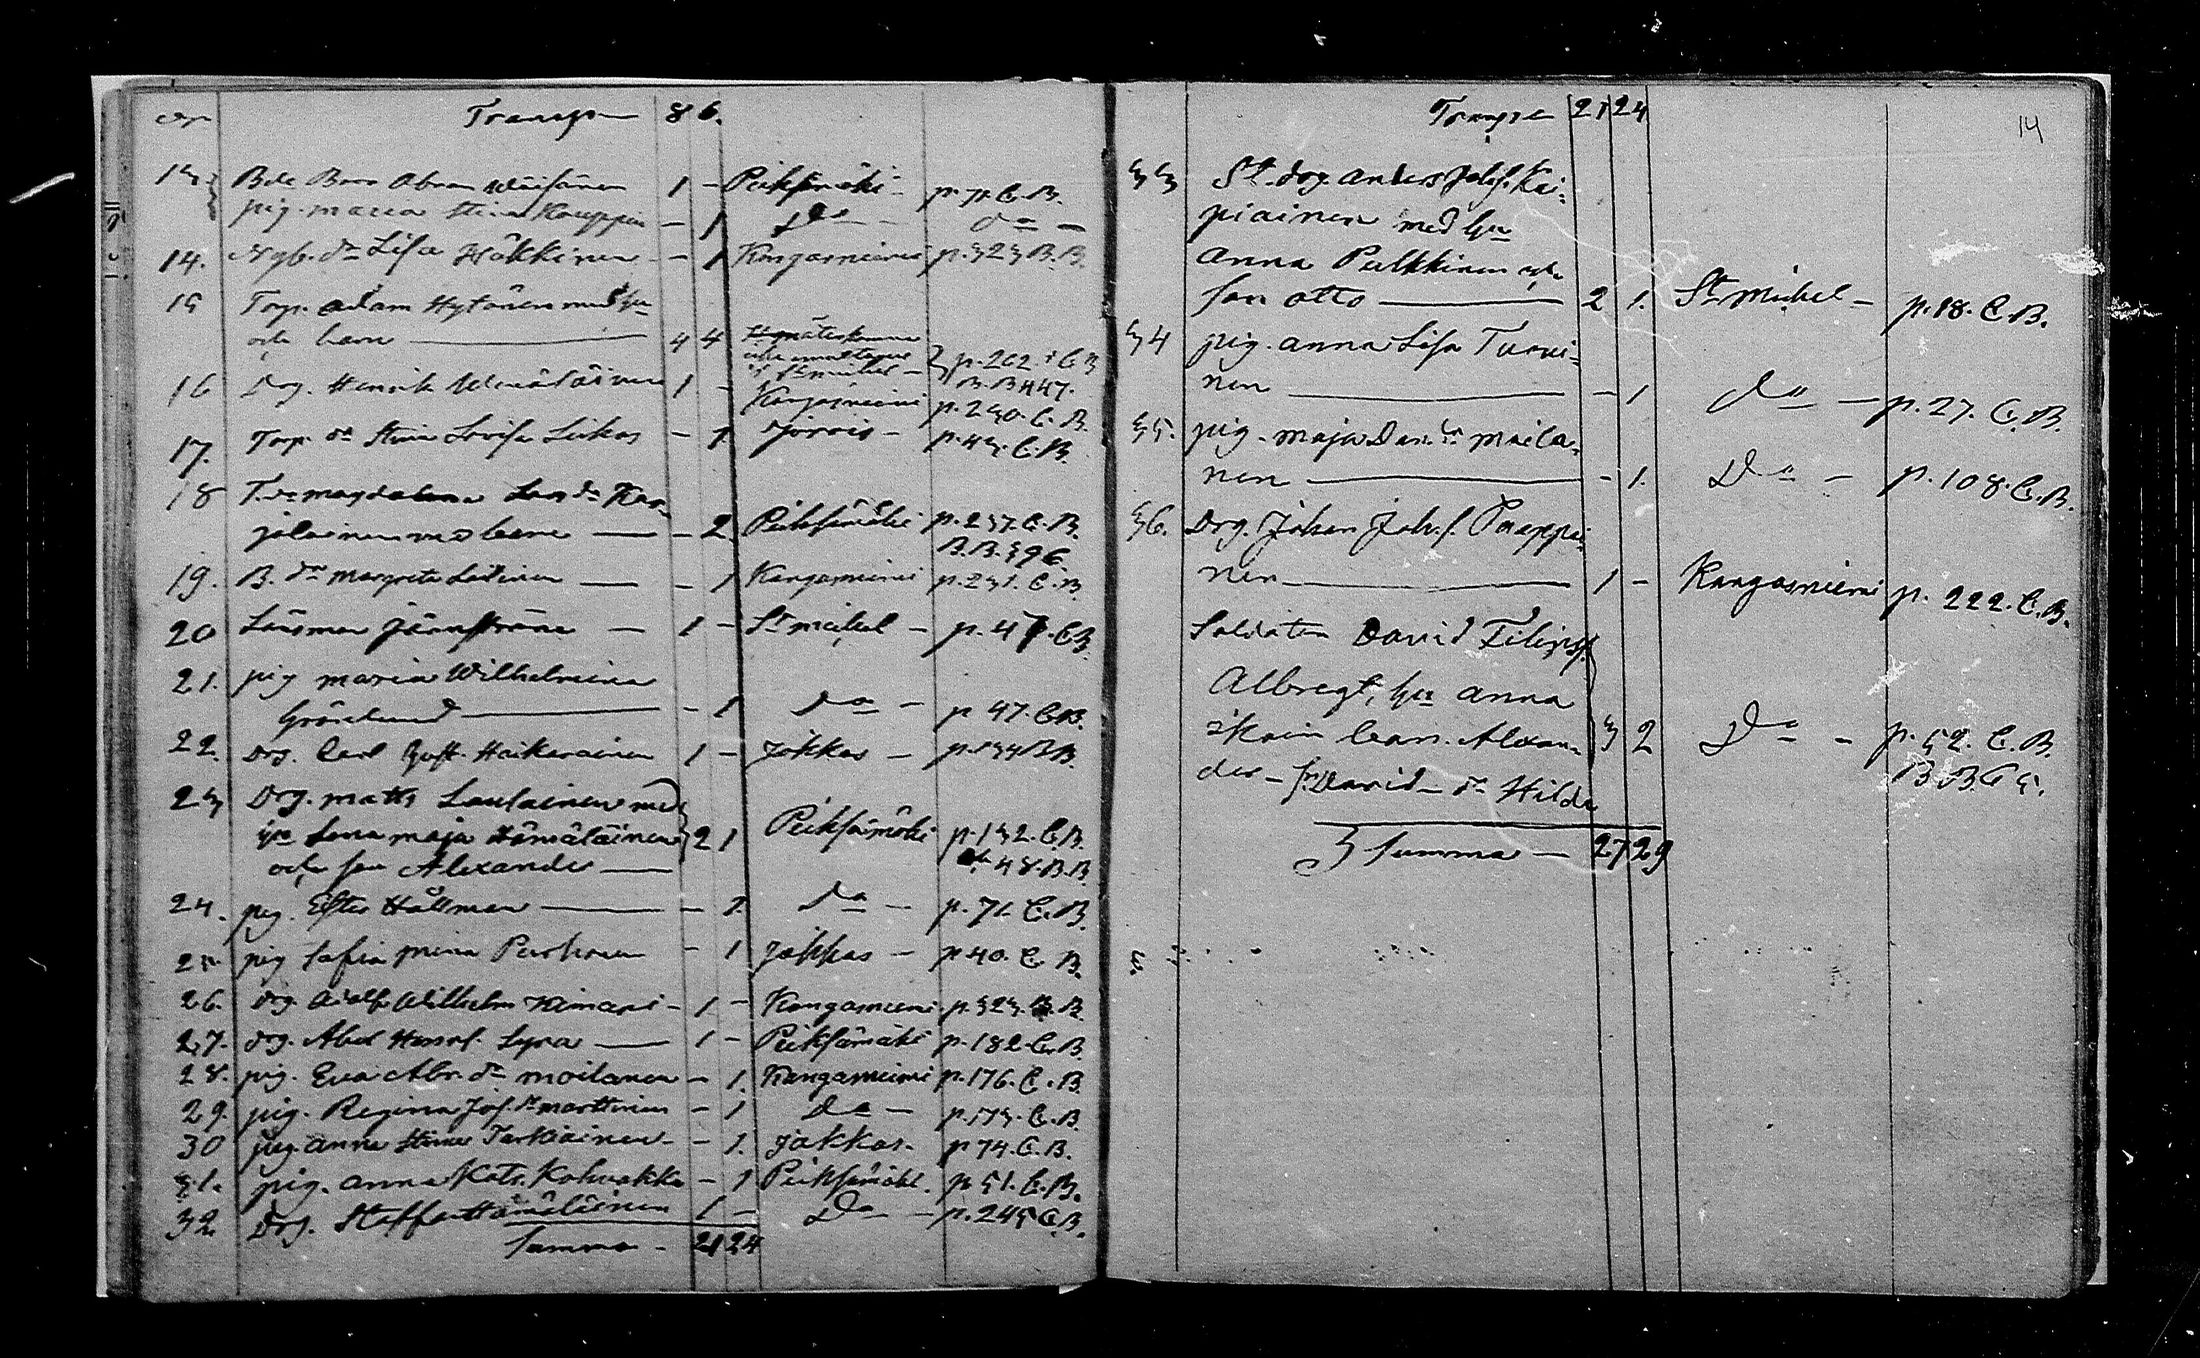 Transp 8 6.
13 Bde Bror Abram Wäisänen 1 - Pieksämäki - p. 71. C.B.
pig. Maria Stina Kauppin - 1 Do Do
14. Nyb. dr Lisa Häkkinen - 1 Kangasniemi p. 323 B.B.
15 Torp. Adam Hytönen med hu
och barn 4 4
St Michel - p. 262. C.B. B.B 447.
16 Drg. Henrik 1 - Kangasniemi p. 230. C.B.
17. Torp. dr Stina Lovisa Liikas - 1 Jorois - p. 43. C.B.
18 Magdalena Lars dr Kar-
jalainen med barn - 2 Pieksämäki p. 237. C.B.
B.B. 396.
19. B. dr Margreta Laitinen - 1 Kangasniemi p. 231. C.B.
20 Länsman 1 - St Michel - p. 47. C.B.
21. pig Maria Wilhelmina
Grönlund - 1 Do - p 47. C.B.
22. Drg. Carl Gust. Haikarainen 1 - Jokkas - p. 134 B.B.
23 Drg. Matts Laulainen med
hu Lena Maja Hämäläinen 2 1 Pieksämäki p. 132. C.B.
och son Alexander 48. B.B.
24. pig. Ester Hällman - 1. Do - p. 71 C.B.
25. pig Sofia Mina Parhonen - 1 Jokkas - p 40. C.B.
26. drg. Adolf Wilhelm - 1 - Kangasniemi p. 323. B.B.
27. drg. Abel Henrs. Lyra 1 - Pieksämäki p. 182 C.B.
28. pig. Eva Abr. dr Moilanen - 1. Kangasniemi p. 176. C.B.
29. pig. Regina Joh. dr Marttinen - 1 Do - p. 173. C.B.
30 pig. Anna Stina Tarkiainen - 1. Jokkas. p 74. C.B.
31. pig. Anna Kats. Kohvakka - 1 Pieksämäki. p 51. C.B.
32 Drg. Staffan Hämäläinen 1 - Do - p. 245 C.B.
Summa - 21 24
14
Transp 21 24
33 St. drg. Anders Johs. Kai-
piainen med hu
Anna Pulkkinen och
son Otto 2 1. St Michel - p. 18. C.B.
34 pig. Anna Lisa Turui-
nen - 1 Do - p. 27. C.B.
35. pig. Maja Dan. dr Moila-
nen - 1. Do - p. 108. C.B.
36. Drg. Johan Joh. s. Pauppi-
nen 1 - Kangasniemi p. 222. C.B.
Soldaten David Filips
Albregt, hu Anna
barn. Alexan- 3 2 Do - p. 52. C.B.
der - s. David - dr Hilda B.B. 65.
Summa - 27 29